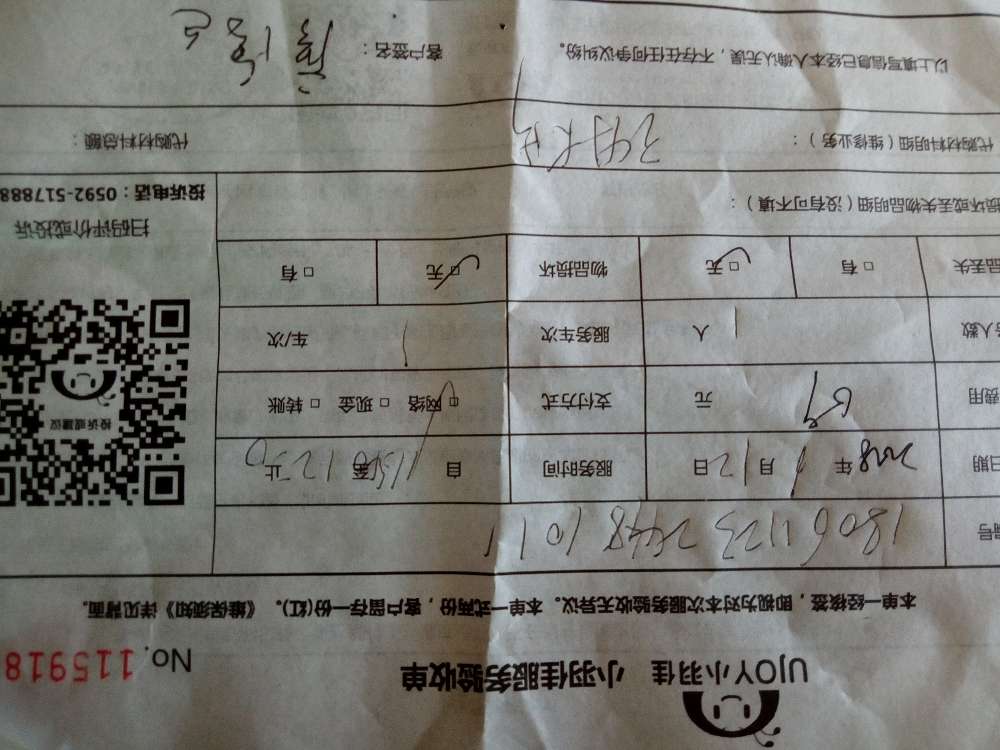 UJOY小羽佳 小羽佳服务验收单
No.115918
本单一经核签，即视为对本次服务验收无异议。本单一式两份，客户留存一份(红)。《维保须知》详见背面。
编号 180611232448101
日期 2018年1月12日 服务时间 自1130至1230止
费用 69元 支付方式 □网络 □现金 □转账
人数 1人 服务车次 1 车/次
品丢失 □有 □无 物品损坏 □无 □有
投诉或建议
扫码评价或投诉
投诉电话：0592-517888
损坏或丢失物品明细（没有可不填）：
代购材料明细（维修业务）：
代购材料总额：
以上填写信息已经本人确认无误，不存在任何争议纠纷。 客户签名：